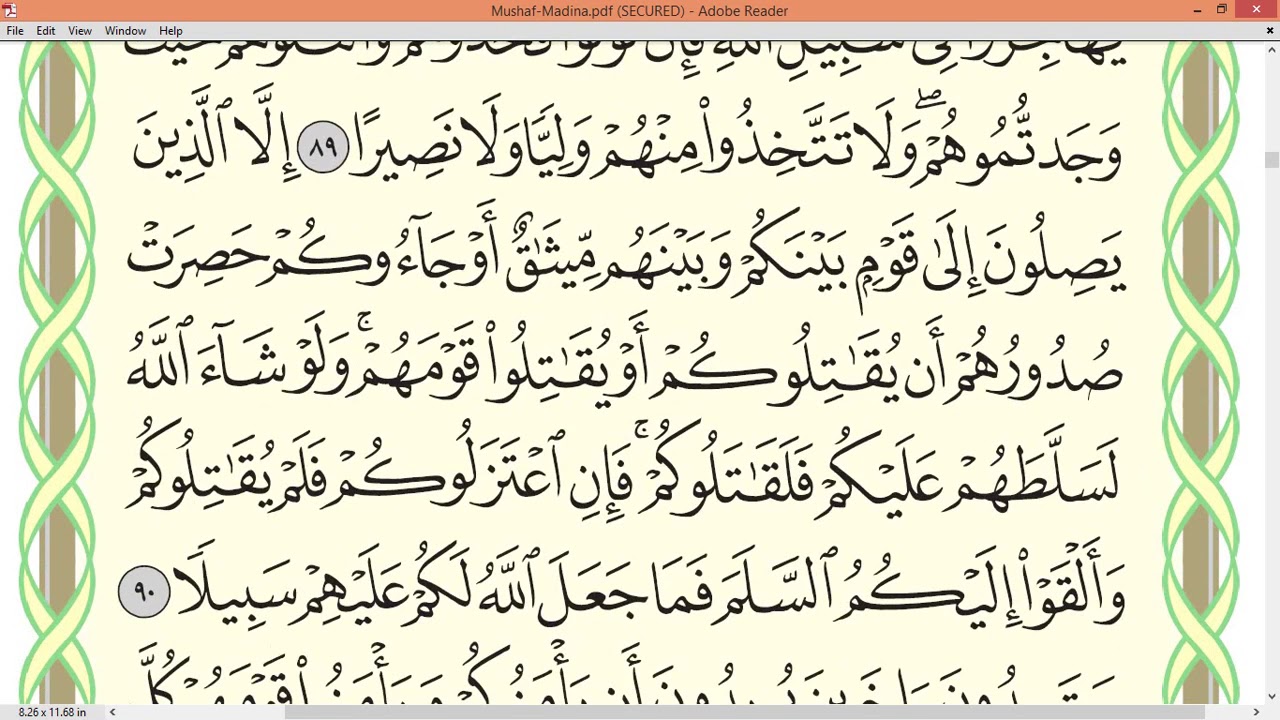 Mushaf-Madina.pdf (SECURED) - Adobe Reader
File Edit View Window Help
يُهَاجِرُوا۟ فِى سَبِيلِ ٱللَّهِ فَإِن تَوَلَّوْا۟ فَخُذُوهُمْ وَٱقْتُلُوهُمْ حَيْثُ
وَجَدتُّمُوهُمْ ۖ وَلَا تَتَّخِذُوا۟ مِنْهُمْ وَلِيًّا وَلَا نَصِيرًا ٨٩ إِلَّا ٱلَّذِينَ
يَصِلُونَ إِلَىٰ قَوْمٍۭ بَيْنَكُمْ وَبَيْنَهُم مِّيثَـٰقٌ أَوْ جَآءُوكُمْ حَصِرَتْ
صُدُورُهُمْ أَن يُقَـٰتِلُوكُمْ أَوْ يُقَـٰتِلُوا۟ قَوْمَهُمْ ۚ وَلَوْ شَآءَ ٱللَّهُ
لَسَلَّطَهُمْ عَلَيْكُمْ فَلَقَـٰتَلُوكُمْ ۚ فَإِنِ ٱعْتَزَلُوكُمْ فَلَمْ يُقَـٰتِلُوكُمْ
وَأَلْقَوْا۟ إِلَيْكُمُ ٱلسَّلَمَ فَمَا جَعَلَ ٱللَّهُ لَكُمْ عَلَيْهِمْ سَبِيلًا ٩٠
8.26 x 11.68 in